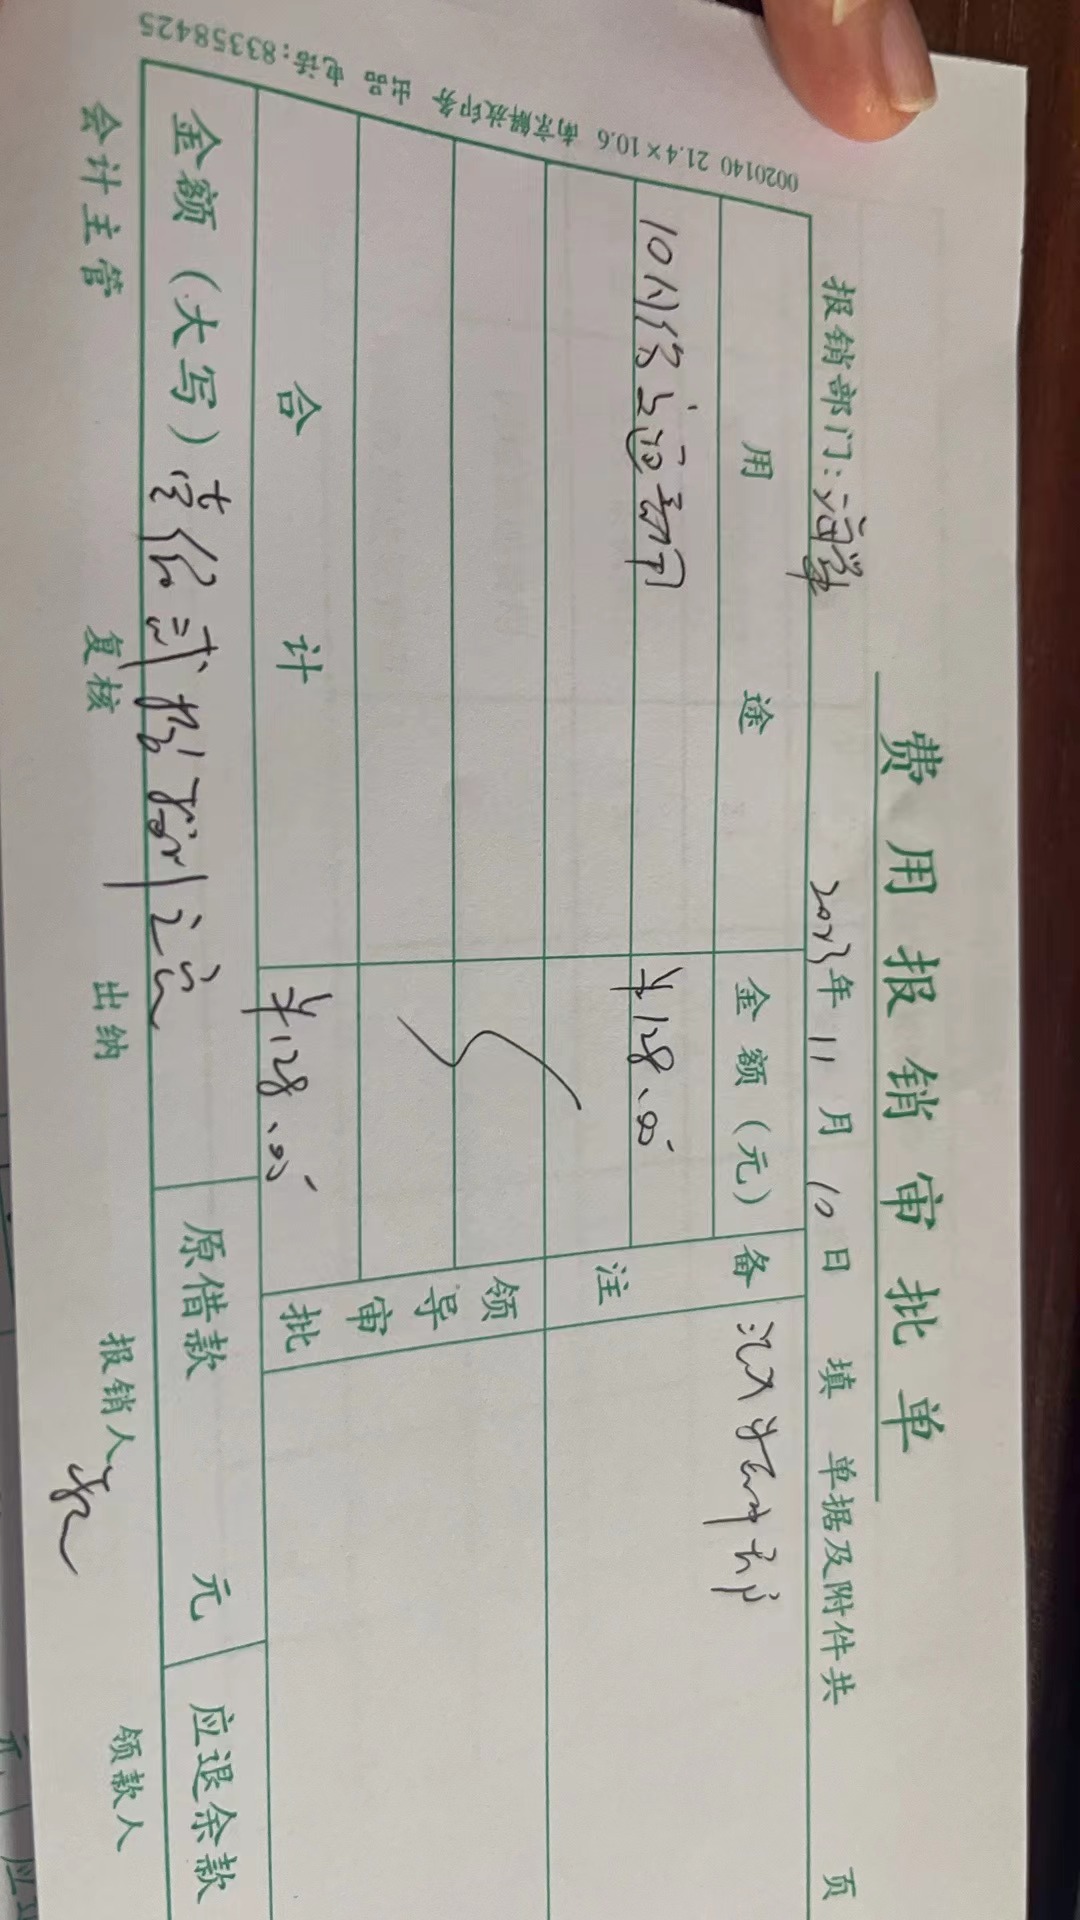 费用报销审批单
报销部门: 2023年11月10日 填 单据及附件共 页
用途 金额(元) 备注
10月份 ¥128.00
领导审批
合计 ¥128.00
金额(大写)壹佰贰拾捌元 原借款 元 应退余款
会计主管 复核 出纳 报销人 领款人
0020140 21.4×10.6 南京解放印务 出品 电话:83358425